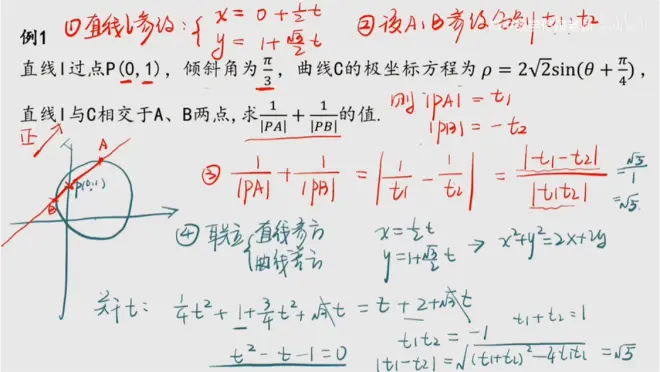 例1
①直线l参价:{x = 0 + 1/2 t
y = 1 + √3/2 t
②设A、B参价分别t₁、t₂
直线l过点P(0, 1),倾斜角为π/3,曲线C的极坐标方程为 ρ = 2√2sin(θ + π/4),
直线l与C相交于A、B两点,求1/|PA| + 1/|PB|的值.
则 |PA| = t₁
|PB| = -t₂
正
A
P(0,1)
B
③ 1/|PA| + 1/|PB| = |1/t₁ - 1/t₂| = |-t₁-t₂|/|t₁t₂| = √5/1
=√5.
④ 联立{直线参方
曲线普方
x = 1/2 t
y = 1+√3/2 t
→ x²+y²=2x+2y
关于t: 1/4 t² + 1 + 3/4 t² + √3 t = t + 2 + √3 t
t² - t - 1 = 0
t₁+t₂ = 1
t₁t₂ = -1
|t₁-t₂| = √(t₁+t₂)²-4t₁t₂ = √5